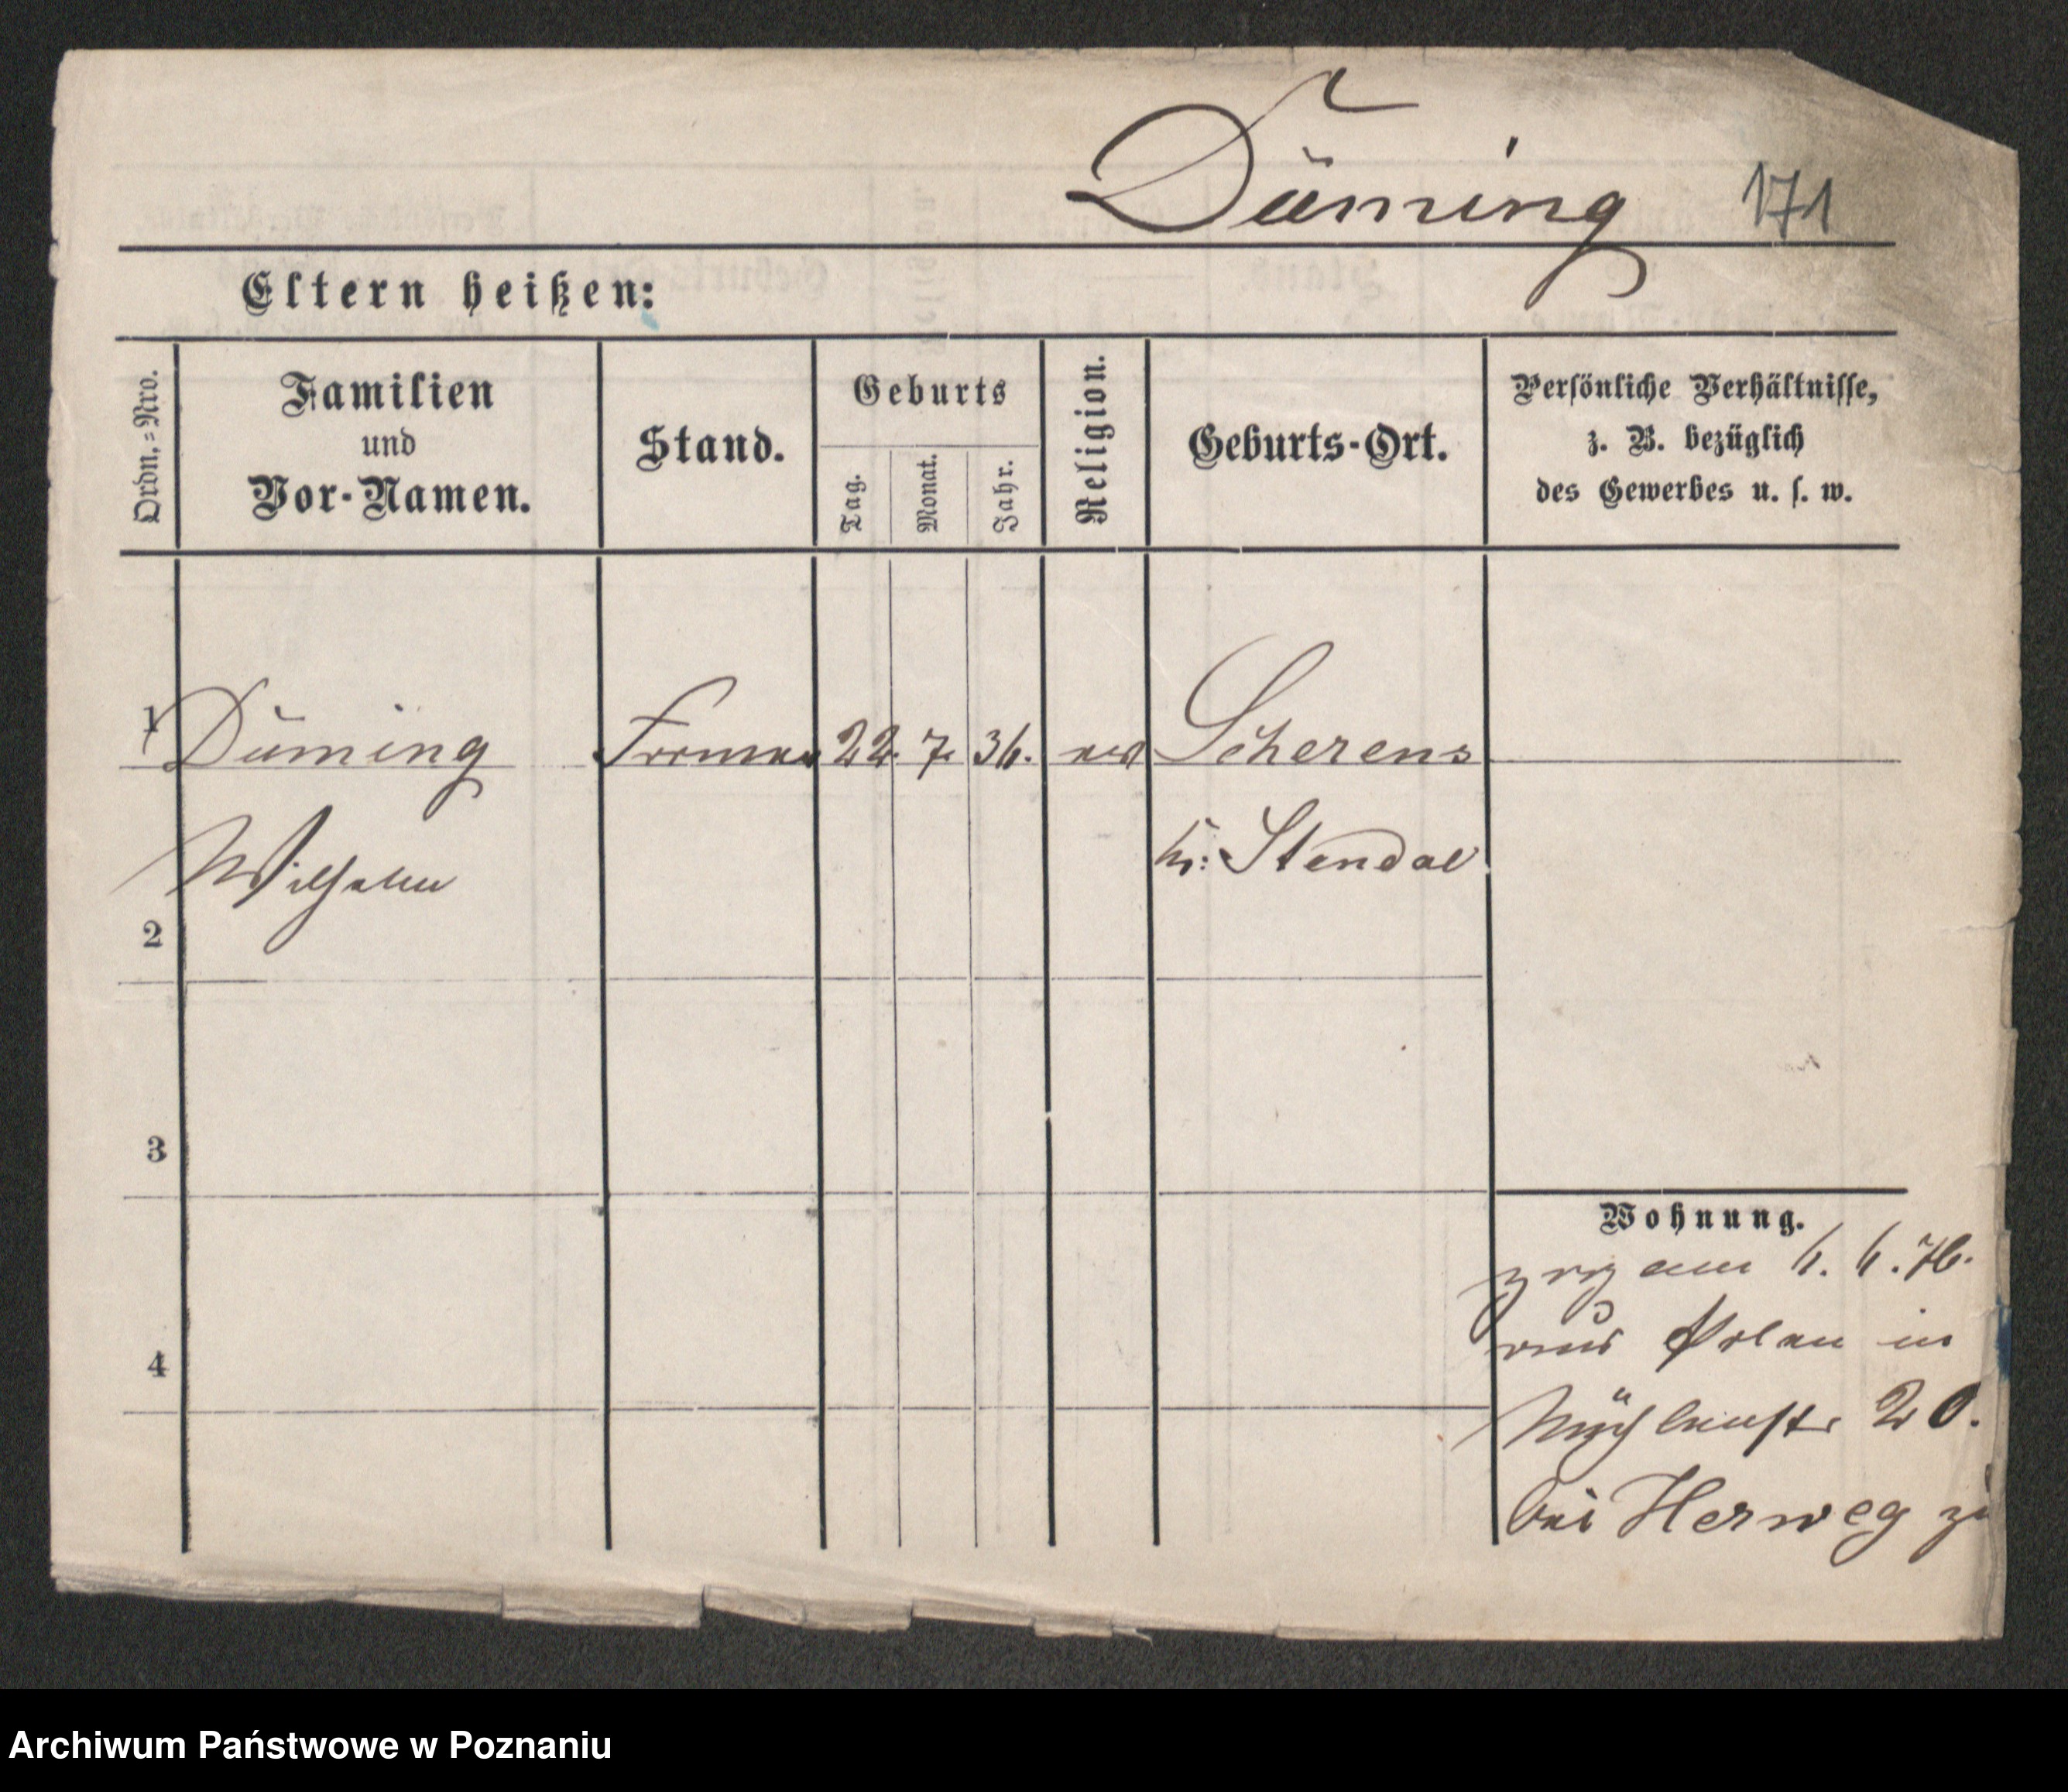 Düming 171
Eltern heißen:
Ordn.-Nro.
Familien
und
Vor-Namen.
Stand.
Geburts
Tag.
Monat.
Jahr.
Religion.
Geburts-Ort.
Persönliche Verhältnisse,
z. B. bezüglich
des Gewerbes u. s. w.
1 Düming 22. 7. 36. Scherens
Wilhelm Kr: Stendal
2
3
4
Wohnung.
zog am 6. 6. 76.
aus in
Mühlenstr 20.
bei Herweg zu
Archiwum Państwowe w Poznaniu